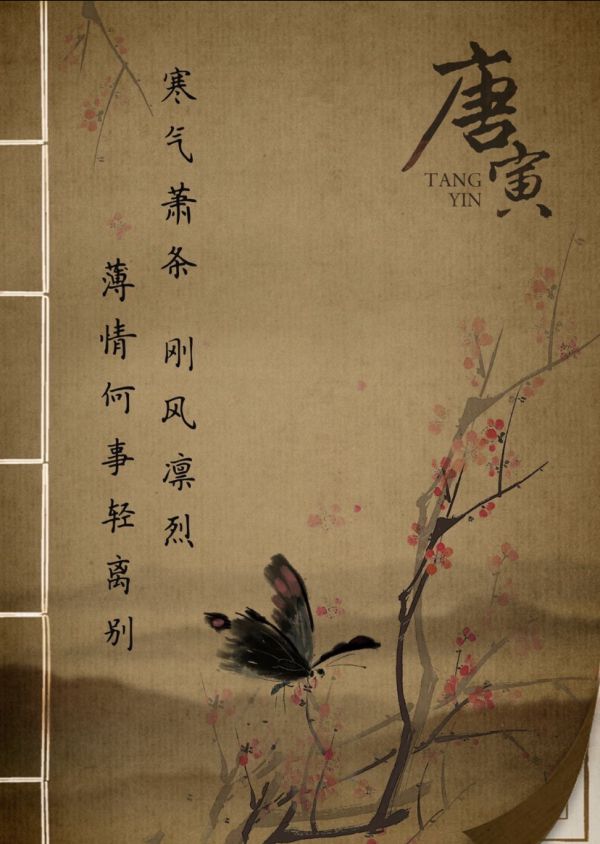 唐寅
TANG
YIN
寒气萧条 刚风凛烈
薄情何事轻离别